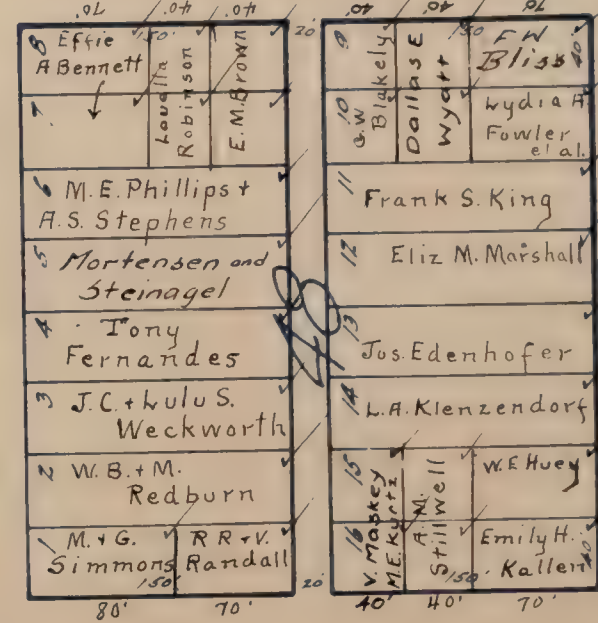 70' 40' 40'
40' 40' 70'
8 Effie
A Bennett
150'
Louella
Robinson
E.M. Brown
20'
7
6 M.E. Phillips +
A.S. Stephens
5 Mortensen and
Steinagel
4 Tony
Fernandes
3 J.C. + Lulu S.
Weckworth
2 W.B. + M.
Redburn
1 M. + G.
Simmons
150'
R R + V.
Randall
20'
80' 70'
9
10 G.W.
Blakely
Dallas E
Wyatt
150
F W
Bliss
40'
Lydia A
Fowler
et al.
11 Frank S. King
12 Eliz M. Marshall
13 Jos. Edenhofer
14 L.A. Klenzendorf
15
16 V. Maskey
M.E. Kurtz
A. M.
Stillwell
W. E Huey
Emily H.
Kallen
40'
150'
40' 40' 70'